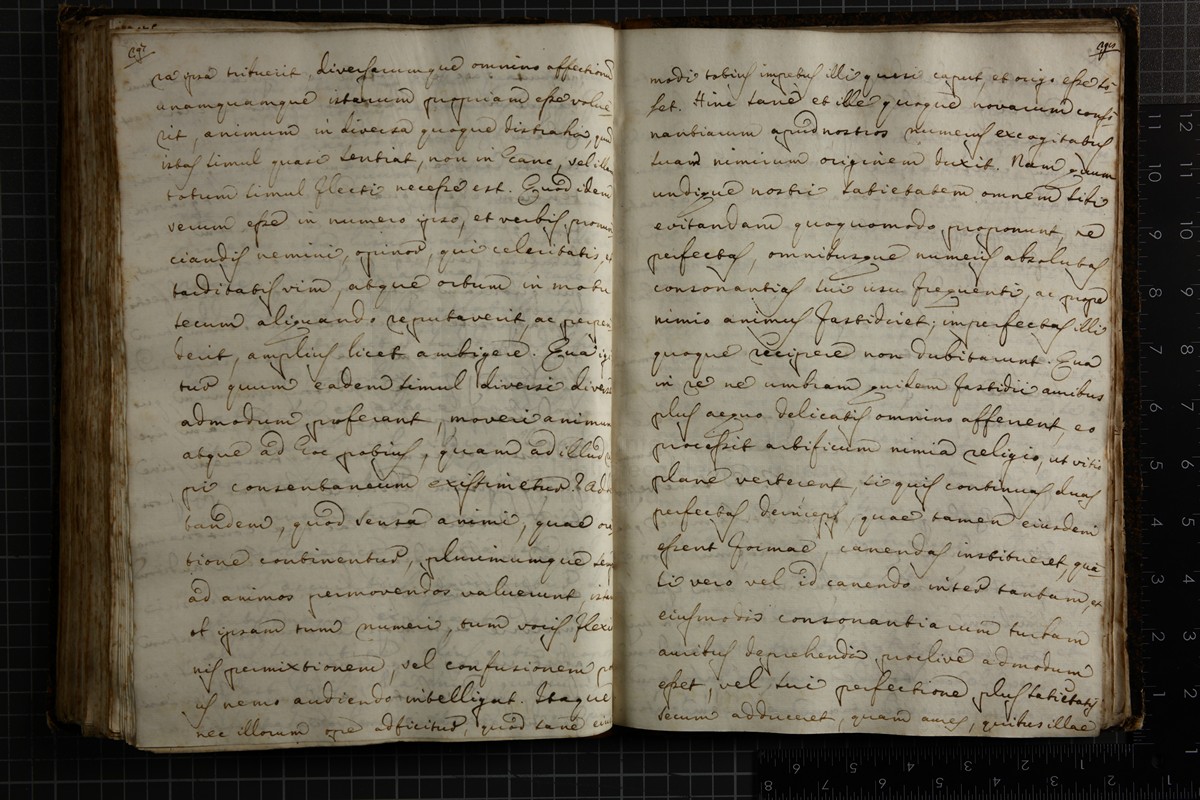 ra ipsa tribuerit, diversarumque omnino affectionu
unamquamque istarum propriam esse volue
rit, animum in diversa quoque distrahi,
istas simul quasi sentiat, non in hanc, vel illam
totum simul flecti necesse est. Quod idem
verum esse in numero ipso, et verbis pronun
ciandis nemini, opinor, qui celeritatis, et
tarditatis vim, atque ortum in motu
secum aliquando reputaverit, ac perpen
derit, amplius licet ambigere. Qua igi
tur quum eadem simul diversi diverso
admodum proferant, moveri animum
atque ad hoc potius, quam ad illud
pi consentaneum existimetur? Ad
tandem, quod sensa animi, quae ora
tione continentur, plurimumque semp
ad animos permovendos valuerunt, ista
ob ipsam tum numeri, tum vocis flexio
nis permixtionem, vel confusionem pr
is nemo audiendo intelligat. Itaque
nec illorum ope adficitur, quod sane
modi totius impetus illi quasi caput, et origo esse so-
let. Hinc sane et ille quoque novarum conso
nantiarum apud nostros numerus excogitatus
suam nimirum originem duxit. Nam quum
undique nostri satietatem omnem sibi
evitandam quoquomodo proponunt, ne
perfectas, omnibusque numeris absolutas
consonantias sui usu frequenti, ac prope
nimio animus fastidiret; imperfectas illi
quoque recipere non dubitarunt. Qua
in re ne umbram quidem fastidii auribus
plus aequo delicatis omnino afferent, eo
processit artificum nimia religio, ut vitio
plane verterent, si quis continuas duas
perfectas deinceps, quae tamen eiusdem
essent formae, canendas institueret, qua-
si vero vel id canendo inter tantam, et
eiusmodi consonantiarum turbam
auribus deprehendi proclive admodum
esset, vel sui perfectione plus satietatis
secum adduceret, quam aures, quibus illae